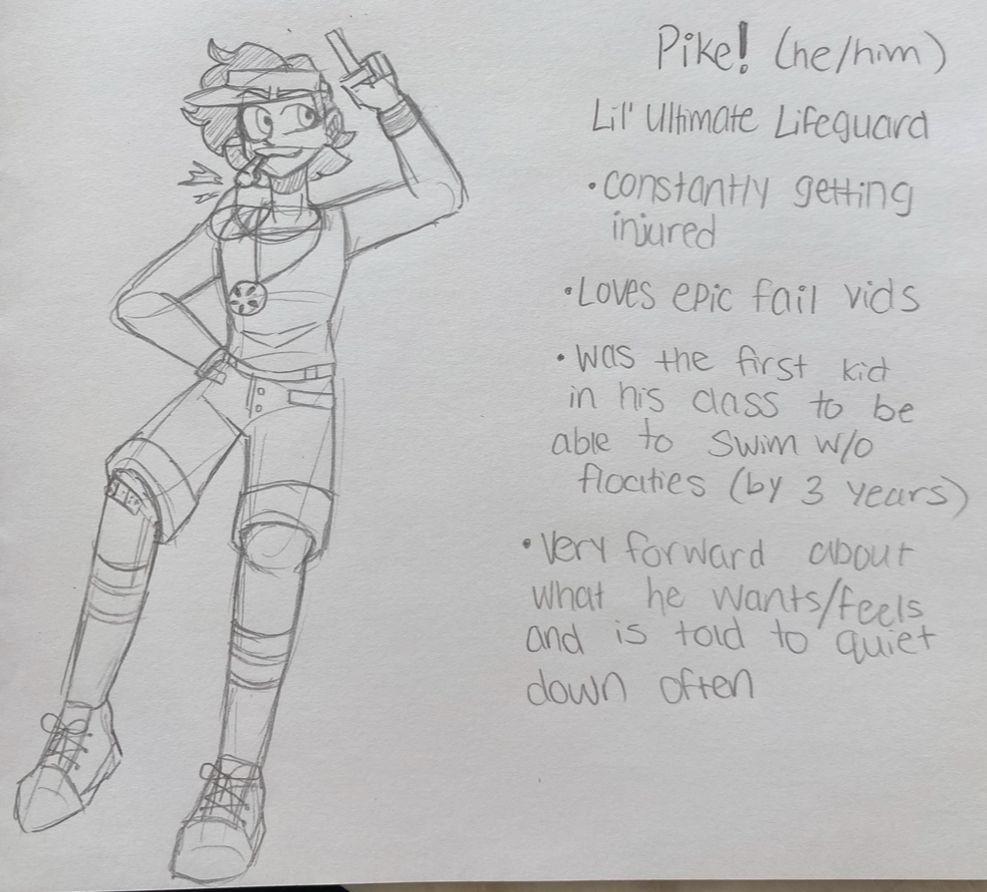 Pike! (he/him)
Lil' Ultimate Lifeguard
• constantly getting
injured
• Loves epic fail vids
• Was the first kid
in his class to be
able to swim w/o
floaties (by 3 years)
• Very forward about
what he wants/feels
and is told to quiet
down often